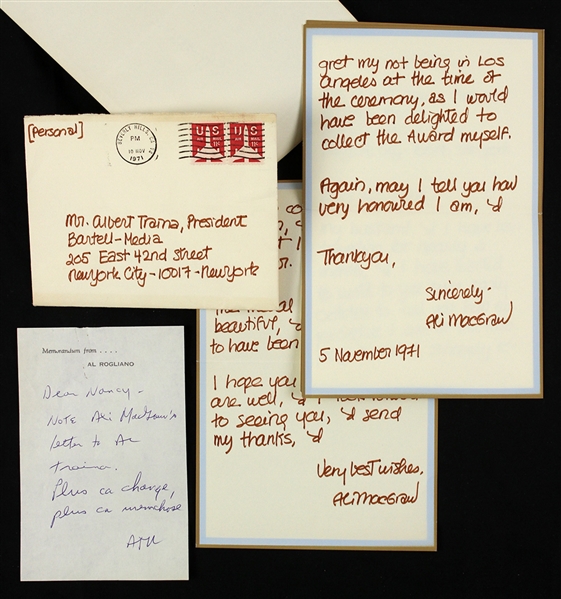 [Personal]
BEVERLY HILLS, CA
PM
10 NOV
1971
US
11¢
US
11¢
Mr. Albert Traina, President
Bartell-Media
205 East 42nd Street
New York City-10017-New York
gret my not being in Los
Angeles at the time of
the ceremony, as I would
have been delighted to
collect the Award myself.
Again, may I tell you how
very honoured I am, 'd
Thankyou,
Sincerely-
Ali MacGraw
5 November 1971
beautiful, 'd
to have been
I hope you
are well, 'd I
to seeing you, 'd send
my thanks, 'd
Very best wishes,
Ali MacGraw
Memorandum from . . . .
AL ROGLIANO
Dear Nancy-
Note Ali MacGraw's
letter to Al
Traina.
Plus ca change,
plus ca memchose